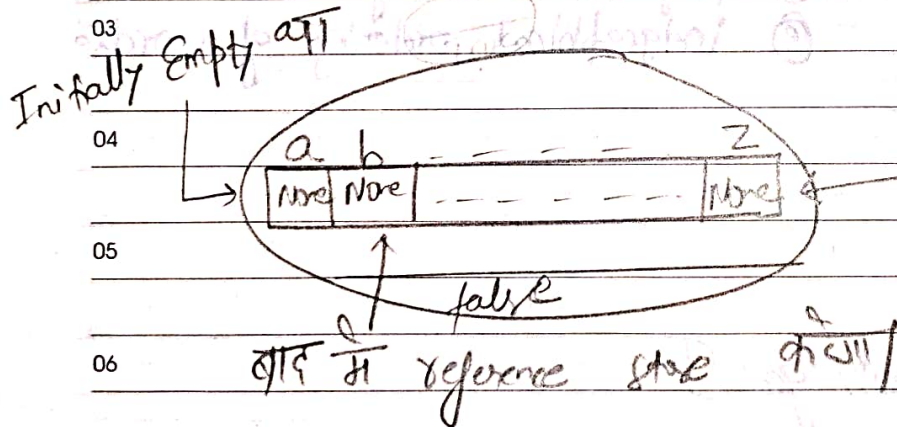 03
Initially Empty था
04
a b - - - - - Z
None None - - - - - None
05
false
06 बाद में reference store करेगा।